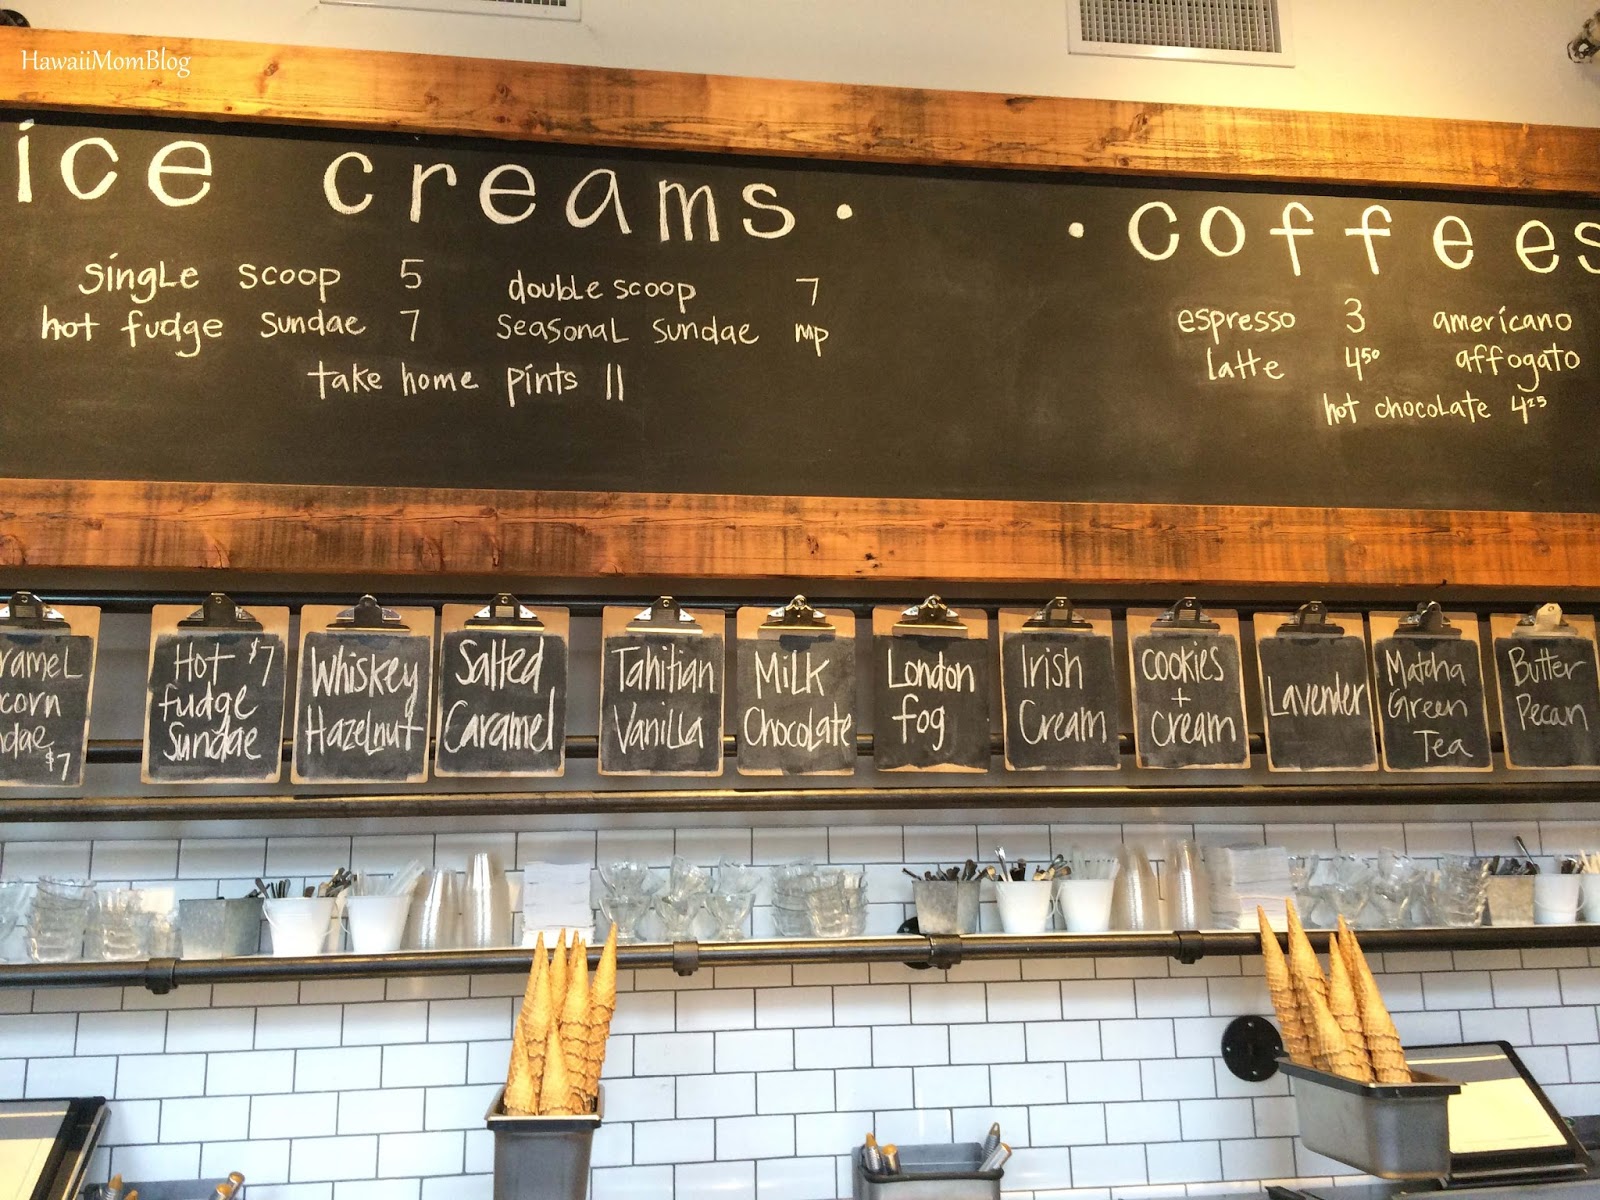 HawaiiMomBlog
ice creams ·
single scoop 5 double scoop 7
hot fudge sundae 7 seasonal sundae mp
take home pints 11
· coffees
espresso 3 americano
latte 4 50 affogato
hot chocolate 4 25
ramel
corn
ndae
$7
Hot $7
fudge
Sundae
Whiskey
Hazelnut
Salted
Caramel
Tahitian
Vanilla
Milk
Chocolate
London
fog
Irish
Cream
cookies
+
cream
Lavender
Matcha
Green
Tea
Butter
Pecan